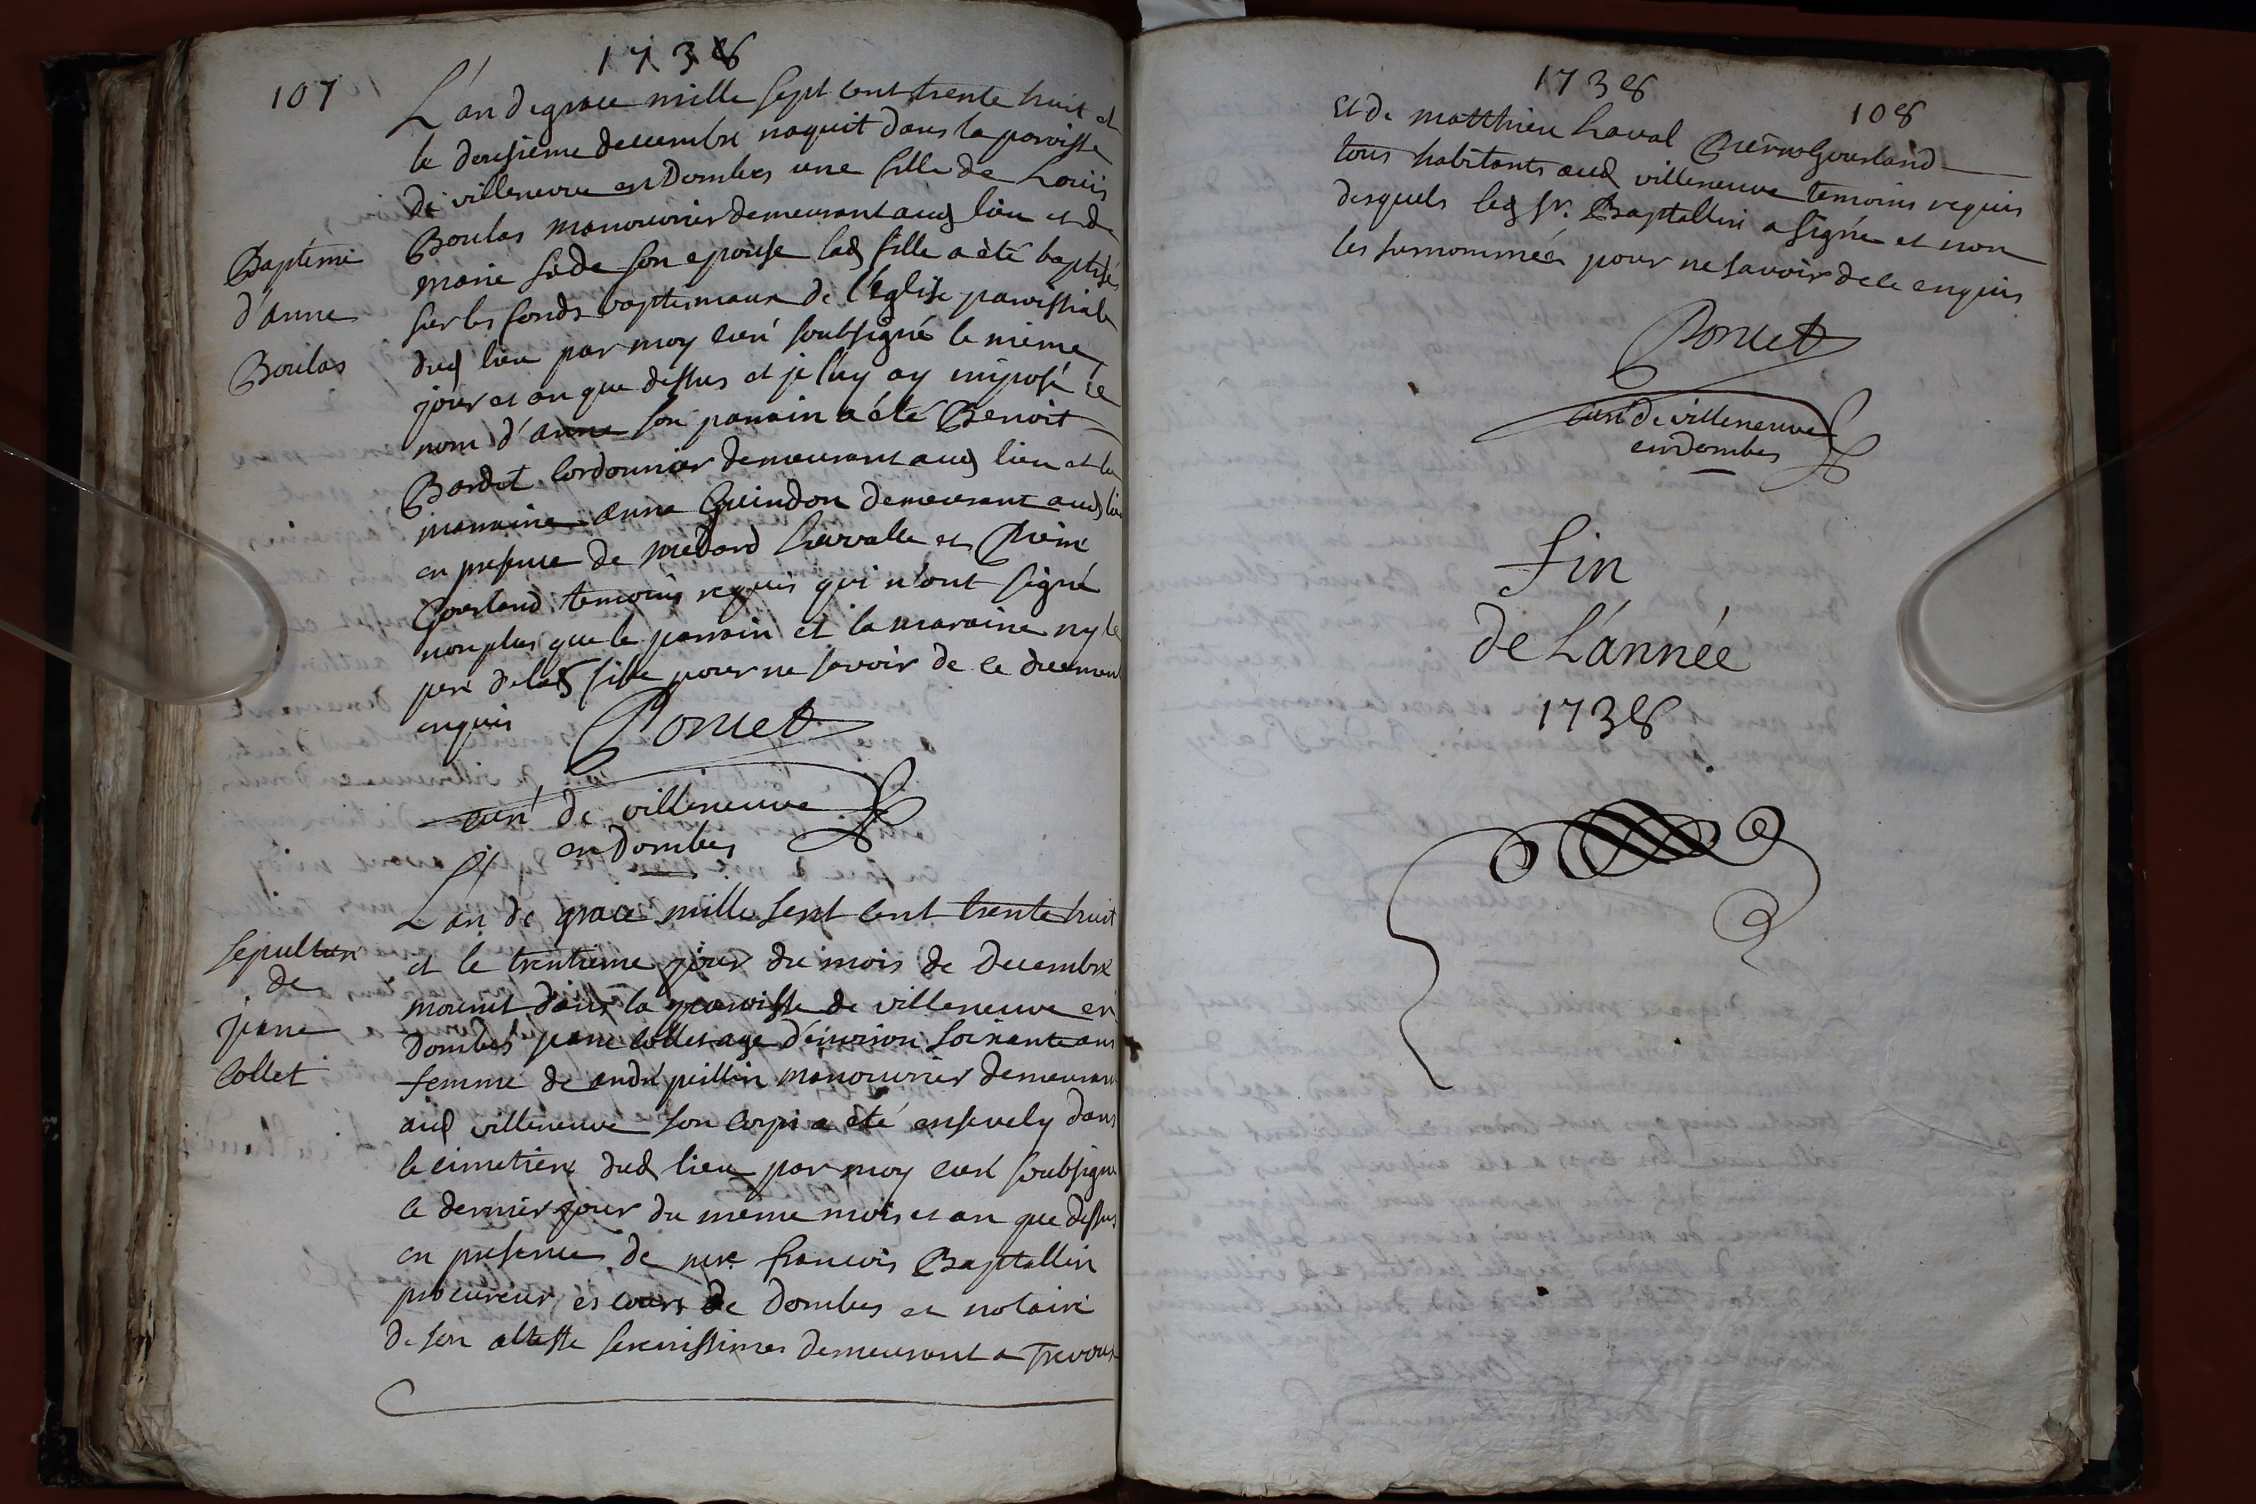 1738
107
L'an de grace mille sept cent trente huit et
le deusieme decembre naquit dans la paroisse
de villeneuve en Dombes une fille de Louis
Boulas manouvrier demeurant aud lieu et de
marie son epouse lad fille a été baptisée
sur les fonds baptismaux de l'Eglise paroissiale
dud lieu par moy curé soubsigné le mème
jour et an que dessus et je luy ay imposé le
nom d'anne son parrain a été Benoit
Bardet Cordonnier demeurant aud lieu et la
marraine anne Guindon demeurant aud lieu
en presence de medard Lievralle et Pierre
Goerland temoins requis qui n'ont signé
non plus que le parrain et la maraine ny le
pere de lad fille pour ne savoir de ce duement
enquis
Poncet
curé de villeneuve
en Dombes
Baptême
d'anne
Boulas
L'an de grace mille sept cent trente huit
et le trentieme jour du mois de Decembre
mourut dans la paroisse de villeneuve en
Dombes jeane Collet age d'environ soixante ans
femme de andré peillin manouvrier demeurant
aud villeneuve son corps a été ensevely dans
le cimetiere dud lieu par moy curé soubsigné
le dernier jour du mème mois et an que dessus
en presence de mre francois Baptallin
procureur es cours de Dombes et notaire
de son altesse serenissimes demeurant a Trevoux
sepulture
de
jeane
Collet
1738
108
Et de matthieu Laval Pierre Goerland
tous habitants aud villeneuve temoins requis
desquels led sr. Baptallin a signé et non
les surnommés pour ne savoir de ce enquis
Poncet
curé de villeneuve
en Dombes
fin
de L'année
1738